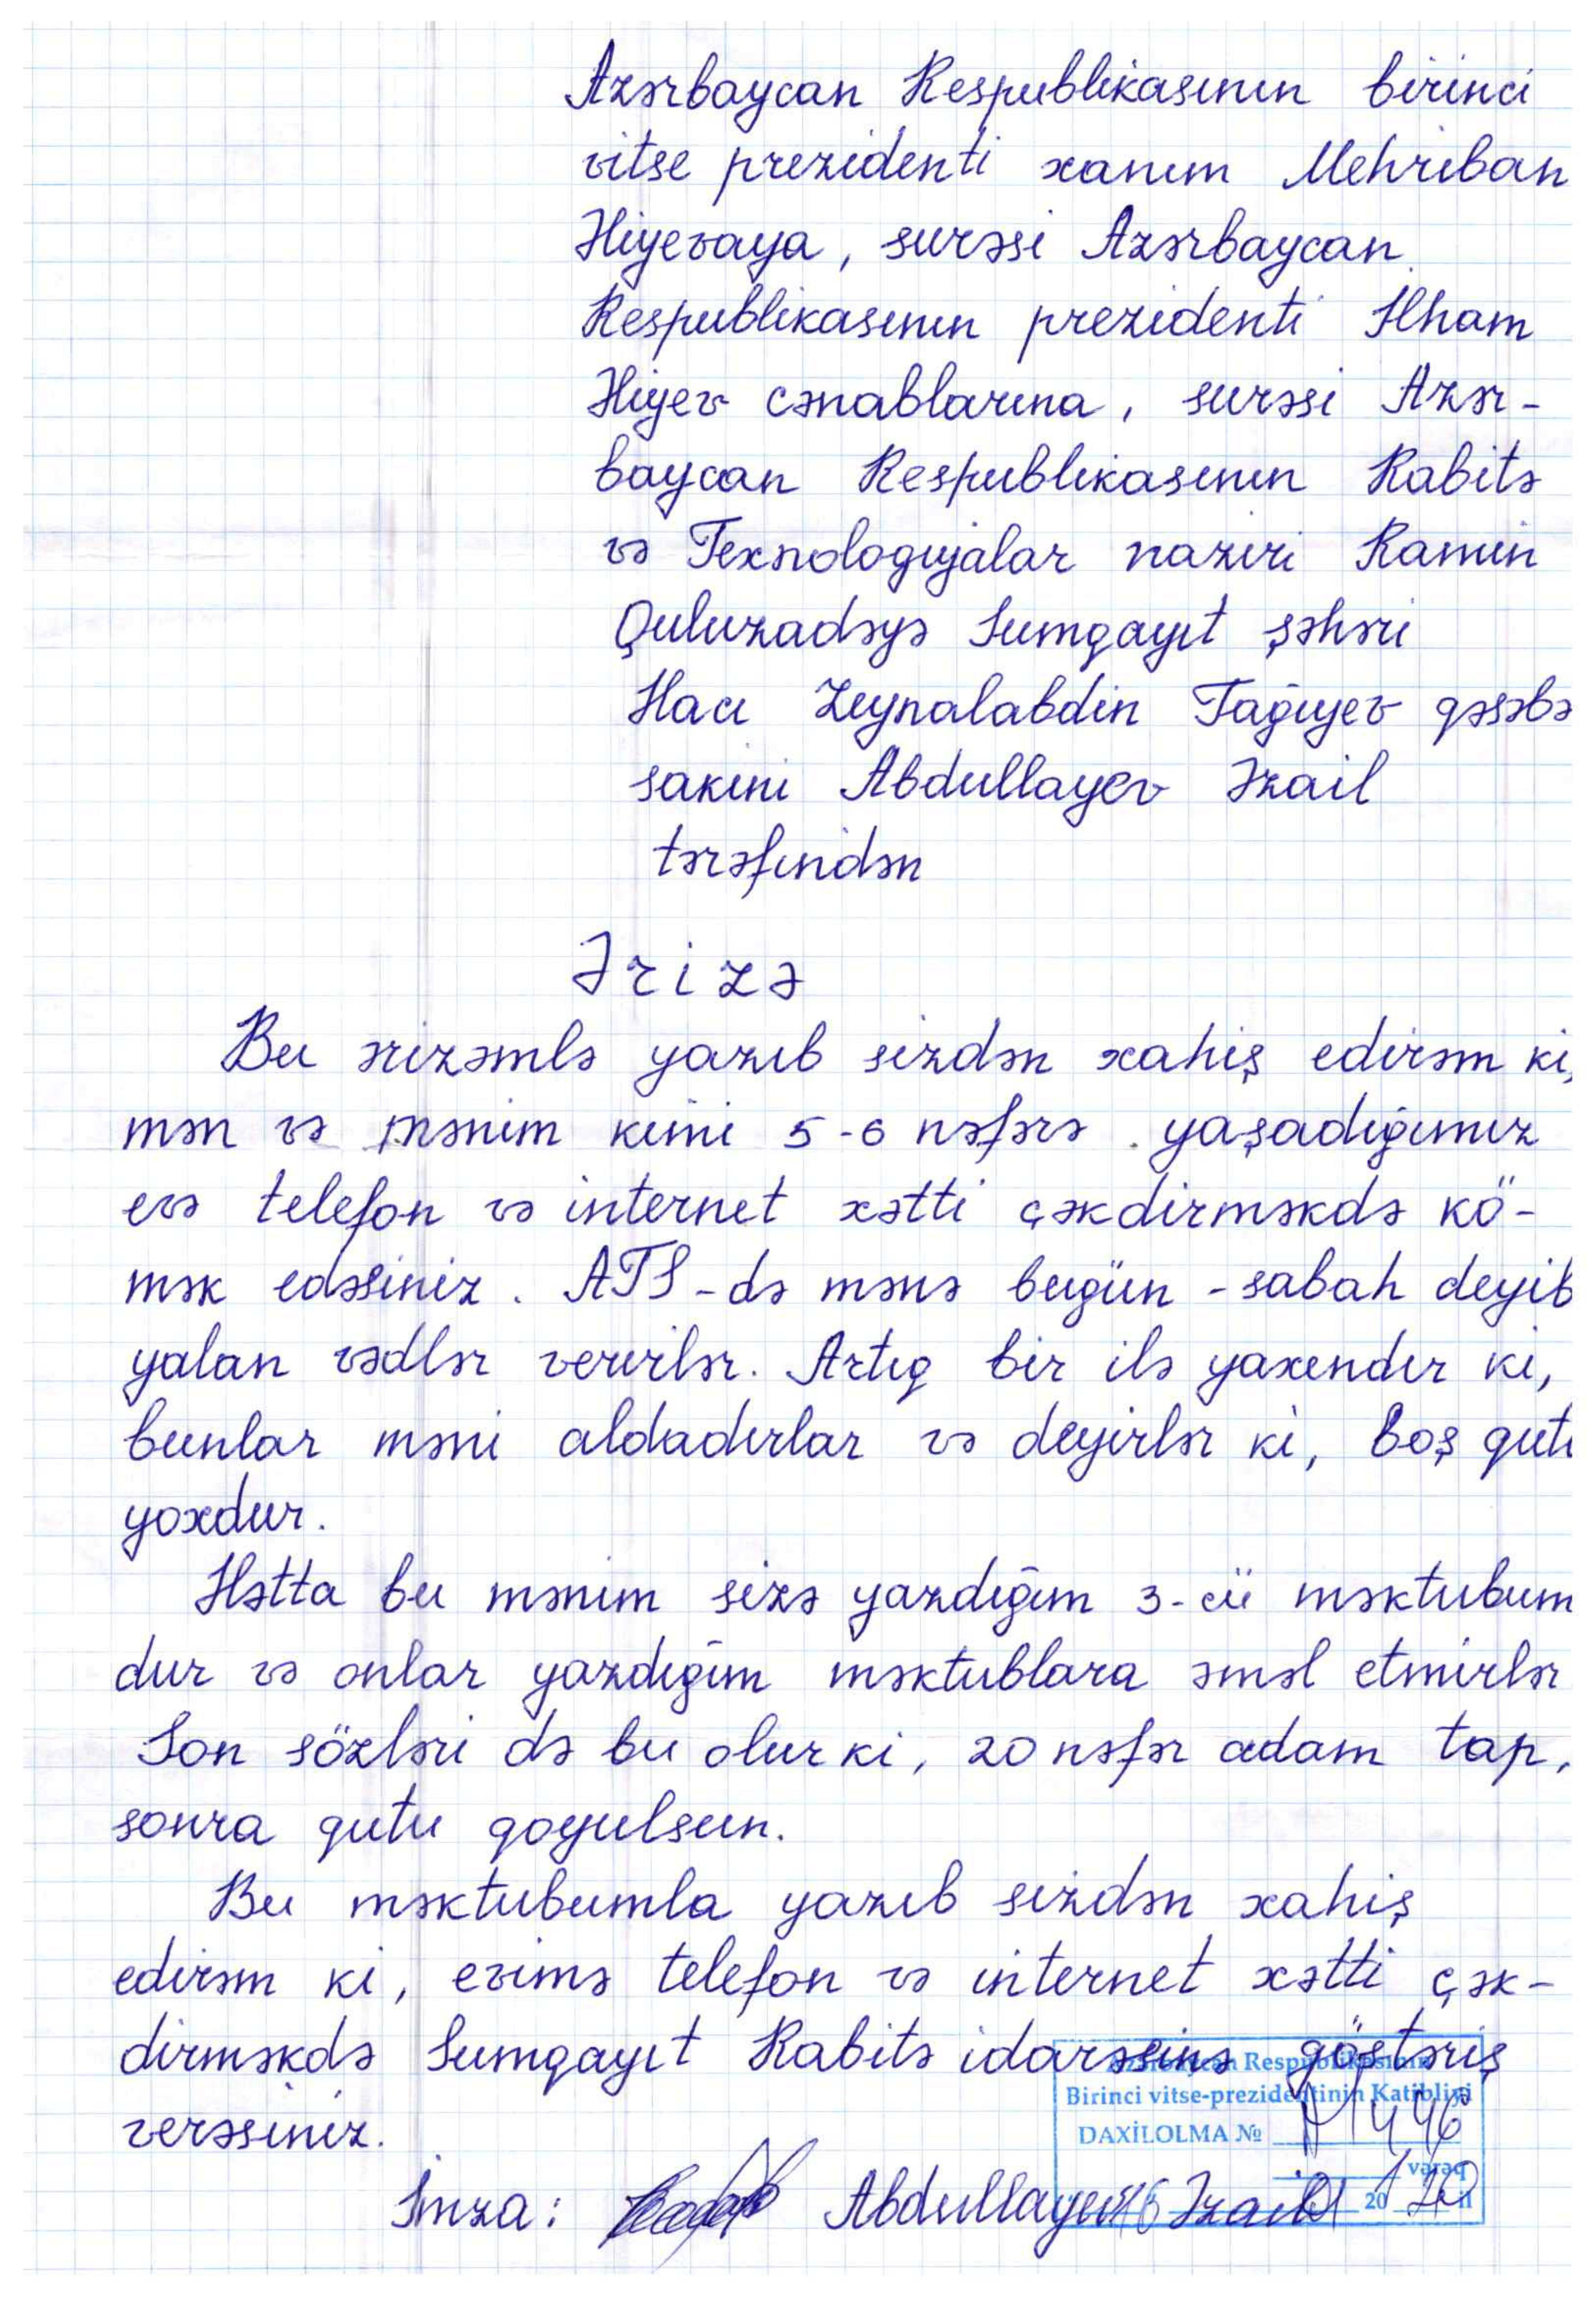 Azərbaycan Respublikasının birinci
vitse prezidenti xanım Mehriban
Əliyevaya, surəsi Azərbaycan
Respublikasının prezidenti İlham
Əliyev cənablarına, surəsi Azər-
baycan Respublikasının Rabitə
və Texnologiyalar naziri Ramin
Quluzadəyə Sumqayıt şəhəri
Hacı Zeynalabdin Tağıyev qəsəbə
sakini Abdullayev Əzail
tərəfindən
Ərizə
Bu ərizəmlə yazıb sizdən xahiş edirəm ki,
mən və mənim kimi 5-6 nəfərə yaşadığımız
evə telefon və internet xətti çəkdirməkdə kö-
mək edəsiniz. ATS-də mənə bugün-sabah deyib
yalan vədlər verirlər. Artıq bir ilə yaxındır ki,
bunlar məni aldadırlar və deyirlər ki, boş qutu
yoxdur.
Hətta bu mənim sizə yazdığım 3-cü məktubum
dur və onlar yazdığım məktublara əməl etmirlər
Son sözləri də bu olur ki, 20 nəfər adam tap,
sonra qutu qoyulsun.
Bu məktubumla yazıb sizdən xahiş
edirəm ki, evimə telefon və internet xətti çək-
dirməkdə Sumqayıt Rabitə idarəsinə göstəriş
Azərbaycan Respublikasının
Birinci vitse-prezidentinin Katibliyi
verəsiniz.
DAXİLOLMA №
vərəq
İmza: Abdullayev Əzail
20 il